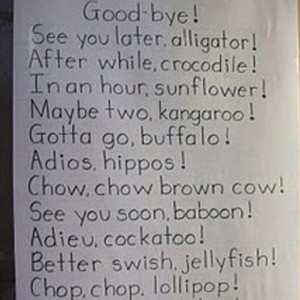 Good-bye!
See you later, alligator!
After while, crocodile!
In an hour, sunflower!
Maybe two, kangaroo!
Gotta go, buffalo!
Adios, hippos!
Chow, chow brown cow!
See you soon, baboon!
Adieu, cockatoo!
Better swish, jellyfish!
Chop, chop, lollipop!